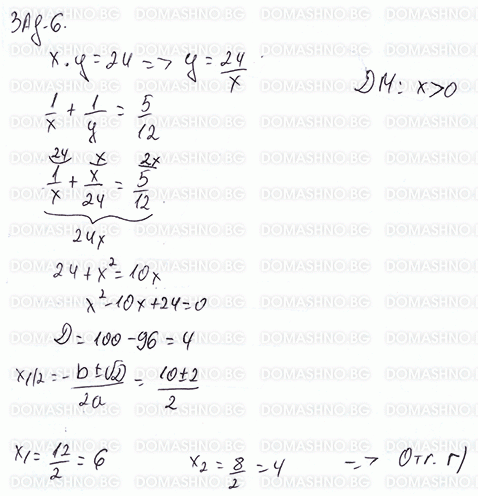 Зад. 6.
x.y = 24 => y = 24/x
ДМ: x>0
1/x + 1/y = 5/12
24 x 2x
1/x + x/24 = 5/12
24x
24+x² = 10x
x²-10x+24=0
D = 100-96 = 4
x1/2 = -b±√D/2a = 10±2/2
x1 = 12/2 = 6 x2 = 8/2 = 4 => Отг. г)
DOMASHNO.BG